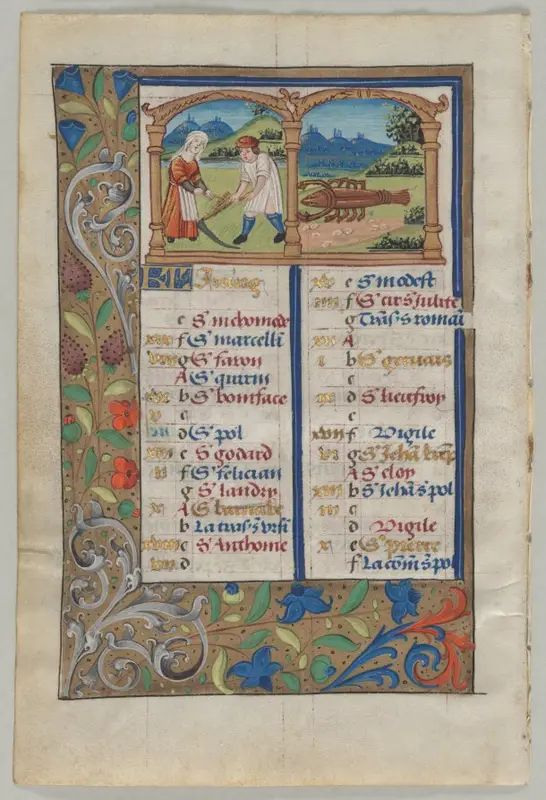 KL Juing
e S' nichomede
xiii f S' marcelli
viii g S' faron
A S' quirin
xvi b S' boniface
v c
d S' pol
xiii e S godard
ii f S' felician
g S' landry
x A S' barnabe
b La tras' s' ursi
xviii c S' Anthoine
vii d
xv e S' modest
iiii f S' cir s' julite
g Tras' s romai
xii A
i b S' geruais
c
ix d S' lieufroy
e
xvii f Vigile
vi g S' Jehā bap
A S' eloy
xiiii b S' Jehā s' pol
iii c
d Vigile
xi e S' pierre
f La cōm s' pol